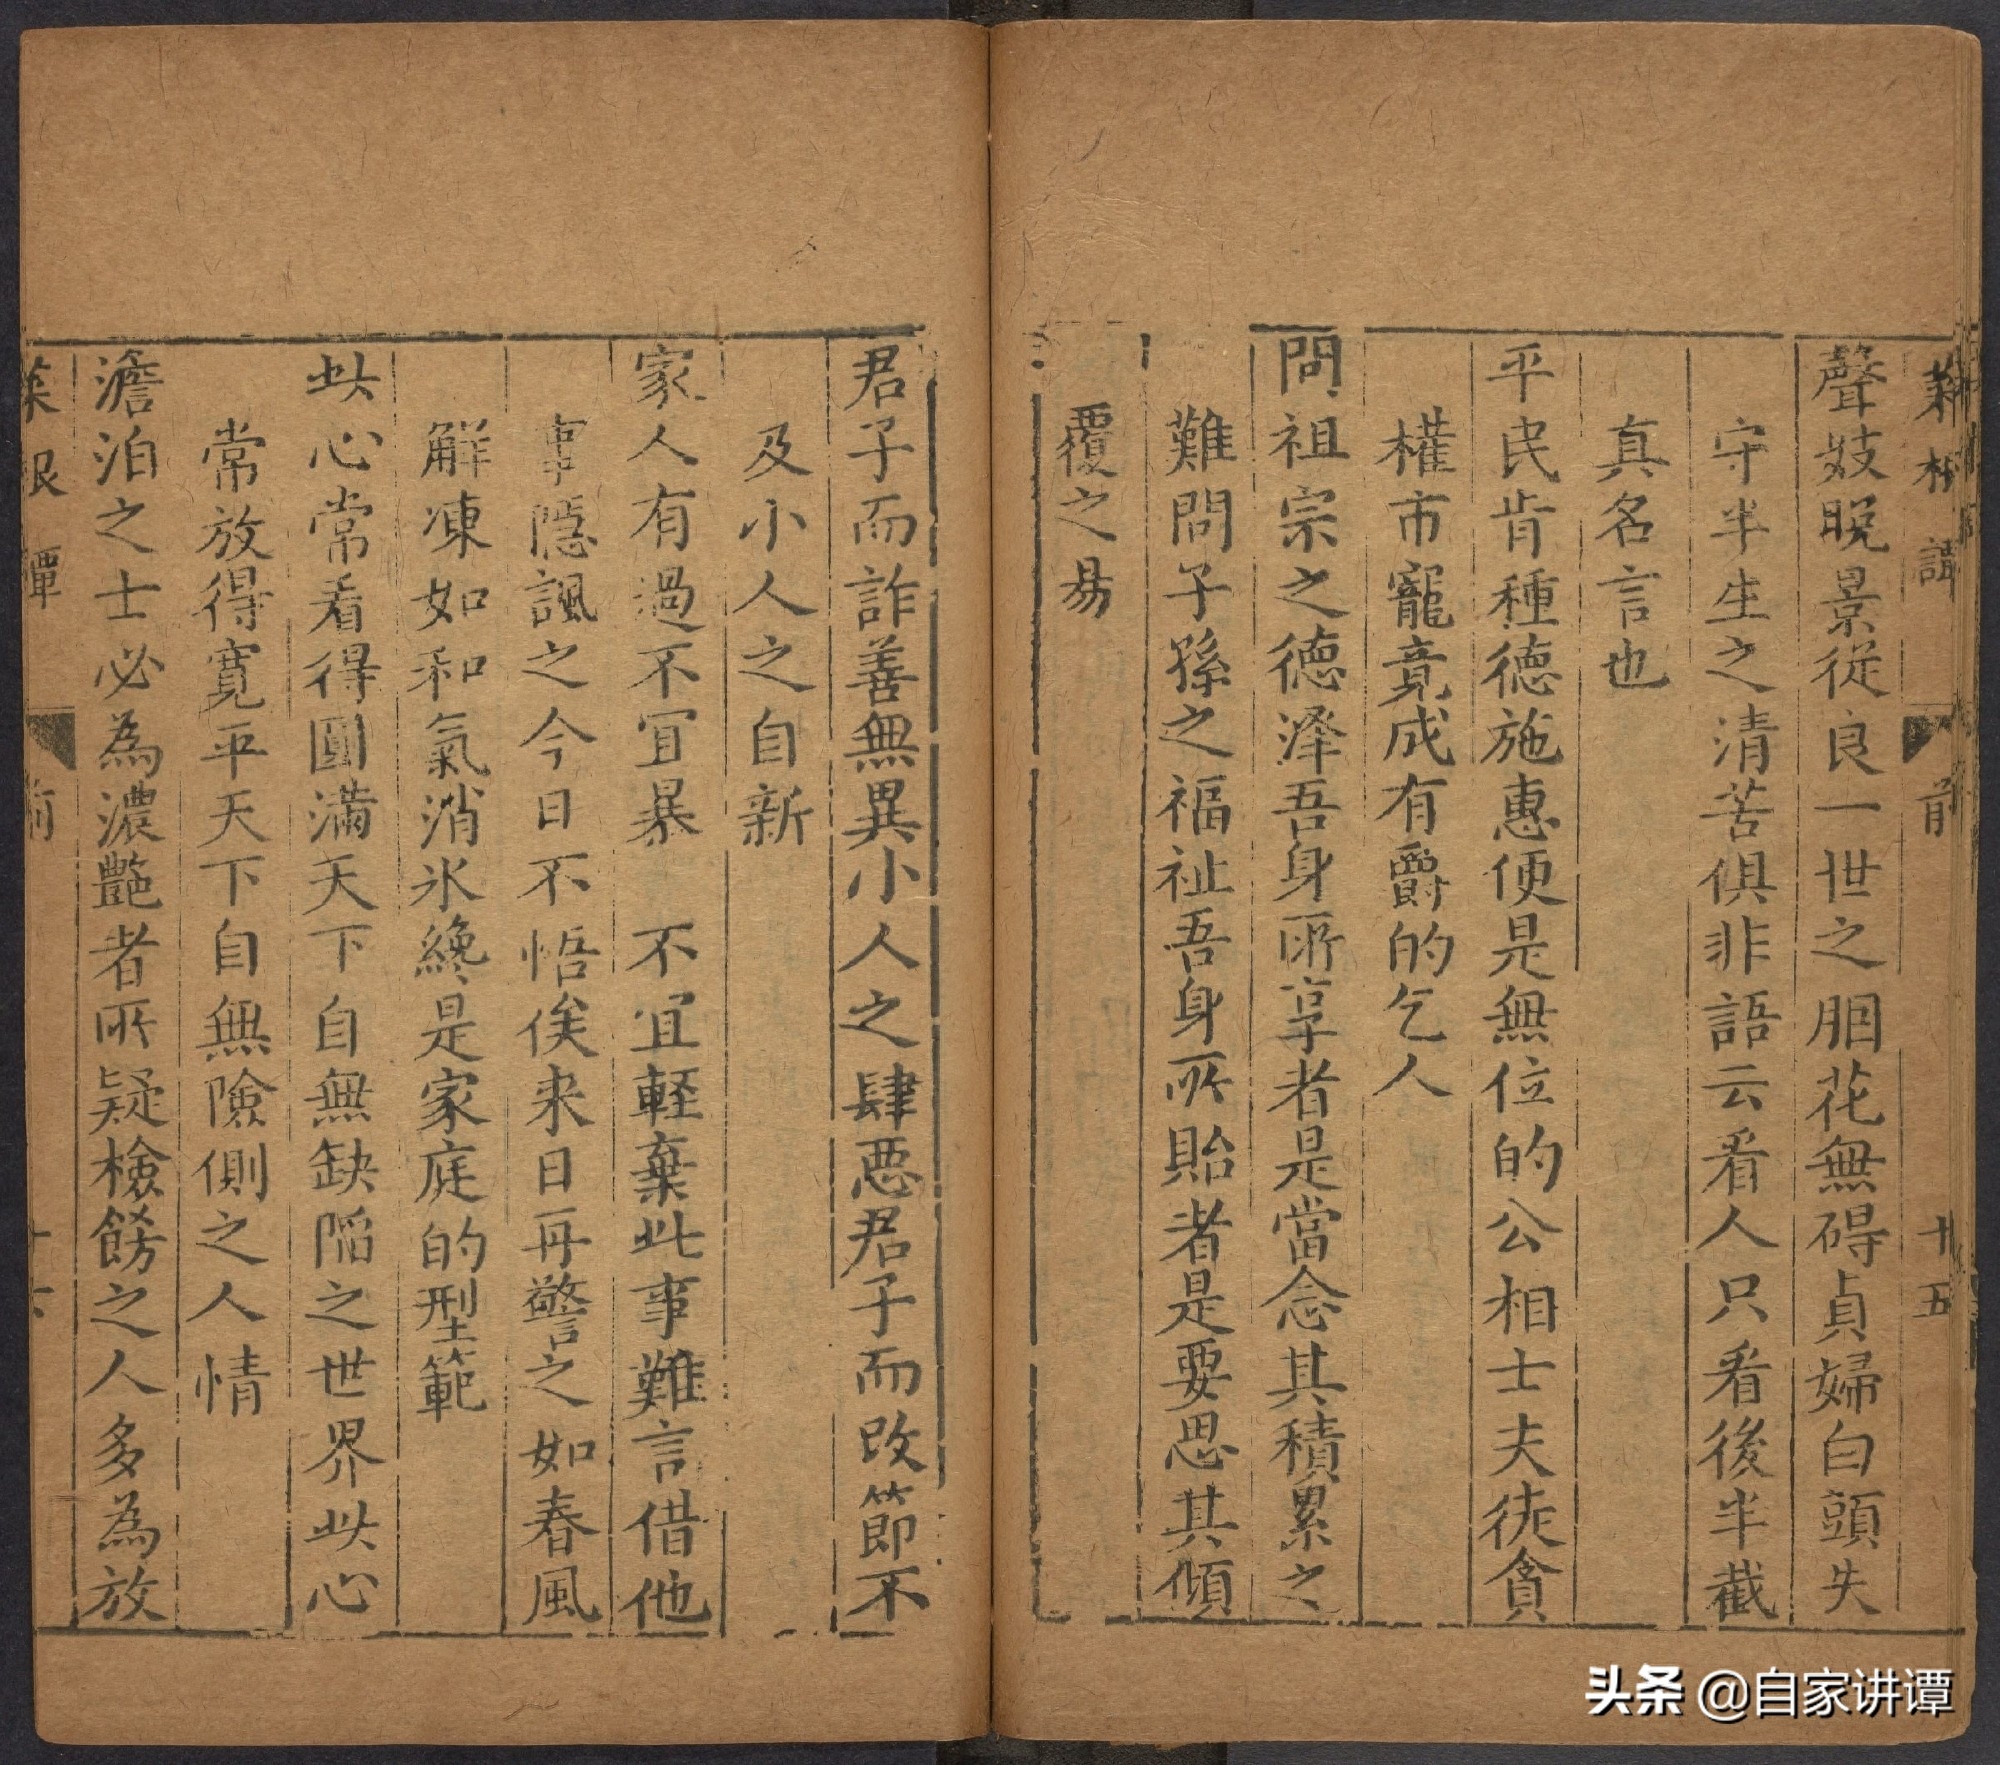 菜根譚 前 十五
聲妓晩景從良一世之胭花無碍貞婦白頭失
守半生之清苦俱非語云看人只看後半截
真名言也
平民肯種德施惠便是無位的公相士夫徒貪
權市寵竟成有爵的乞人
問祖宗之德澤吾身所享者是當念其積累之
難問子孫之福祉吾身所貽者是要思其傾
覆之易
君子而詐善無異小人之肆惡君子而改節不
及小人之自新
家人有過不宜暴 不宜軽棄此事難言借他
事隱諷之今日不悟俟来日再警之如春風
解凍如和氣消氷纔是家庭的型範
此心常看得圓滿天下自無缺陷之世界此心
常放得寬平天下自無險側之人情
澹泊之士必為濃艷者所疑檢飭之人多為放
菜根譚 前
头条 @自家讲谭